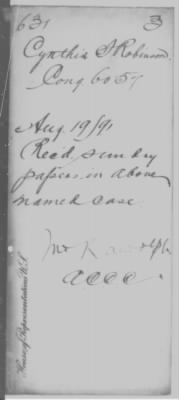 631 3
Cynthia S Robinson.
Cong 6057
Aug. 19/91
Rec'd sundry
papers in above
named case
Jno Randolph
House of Representatives U.S.